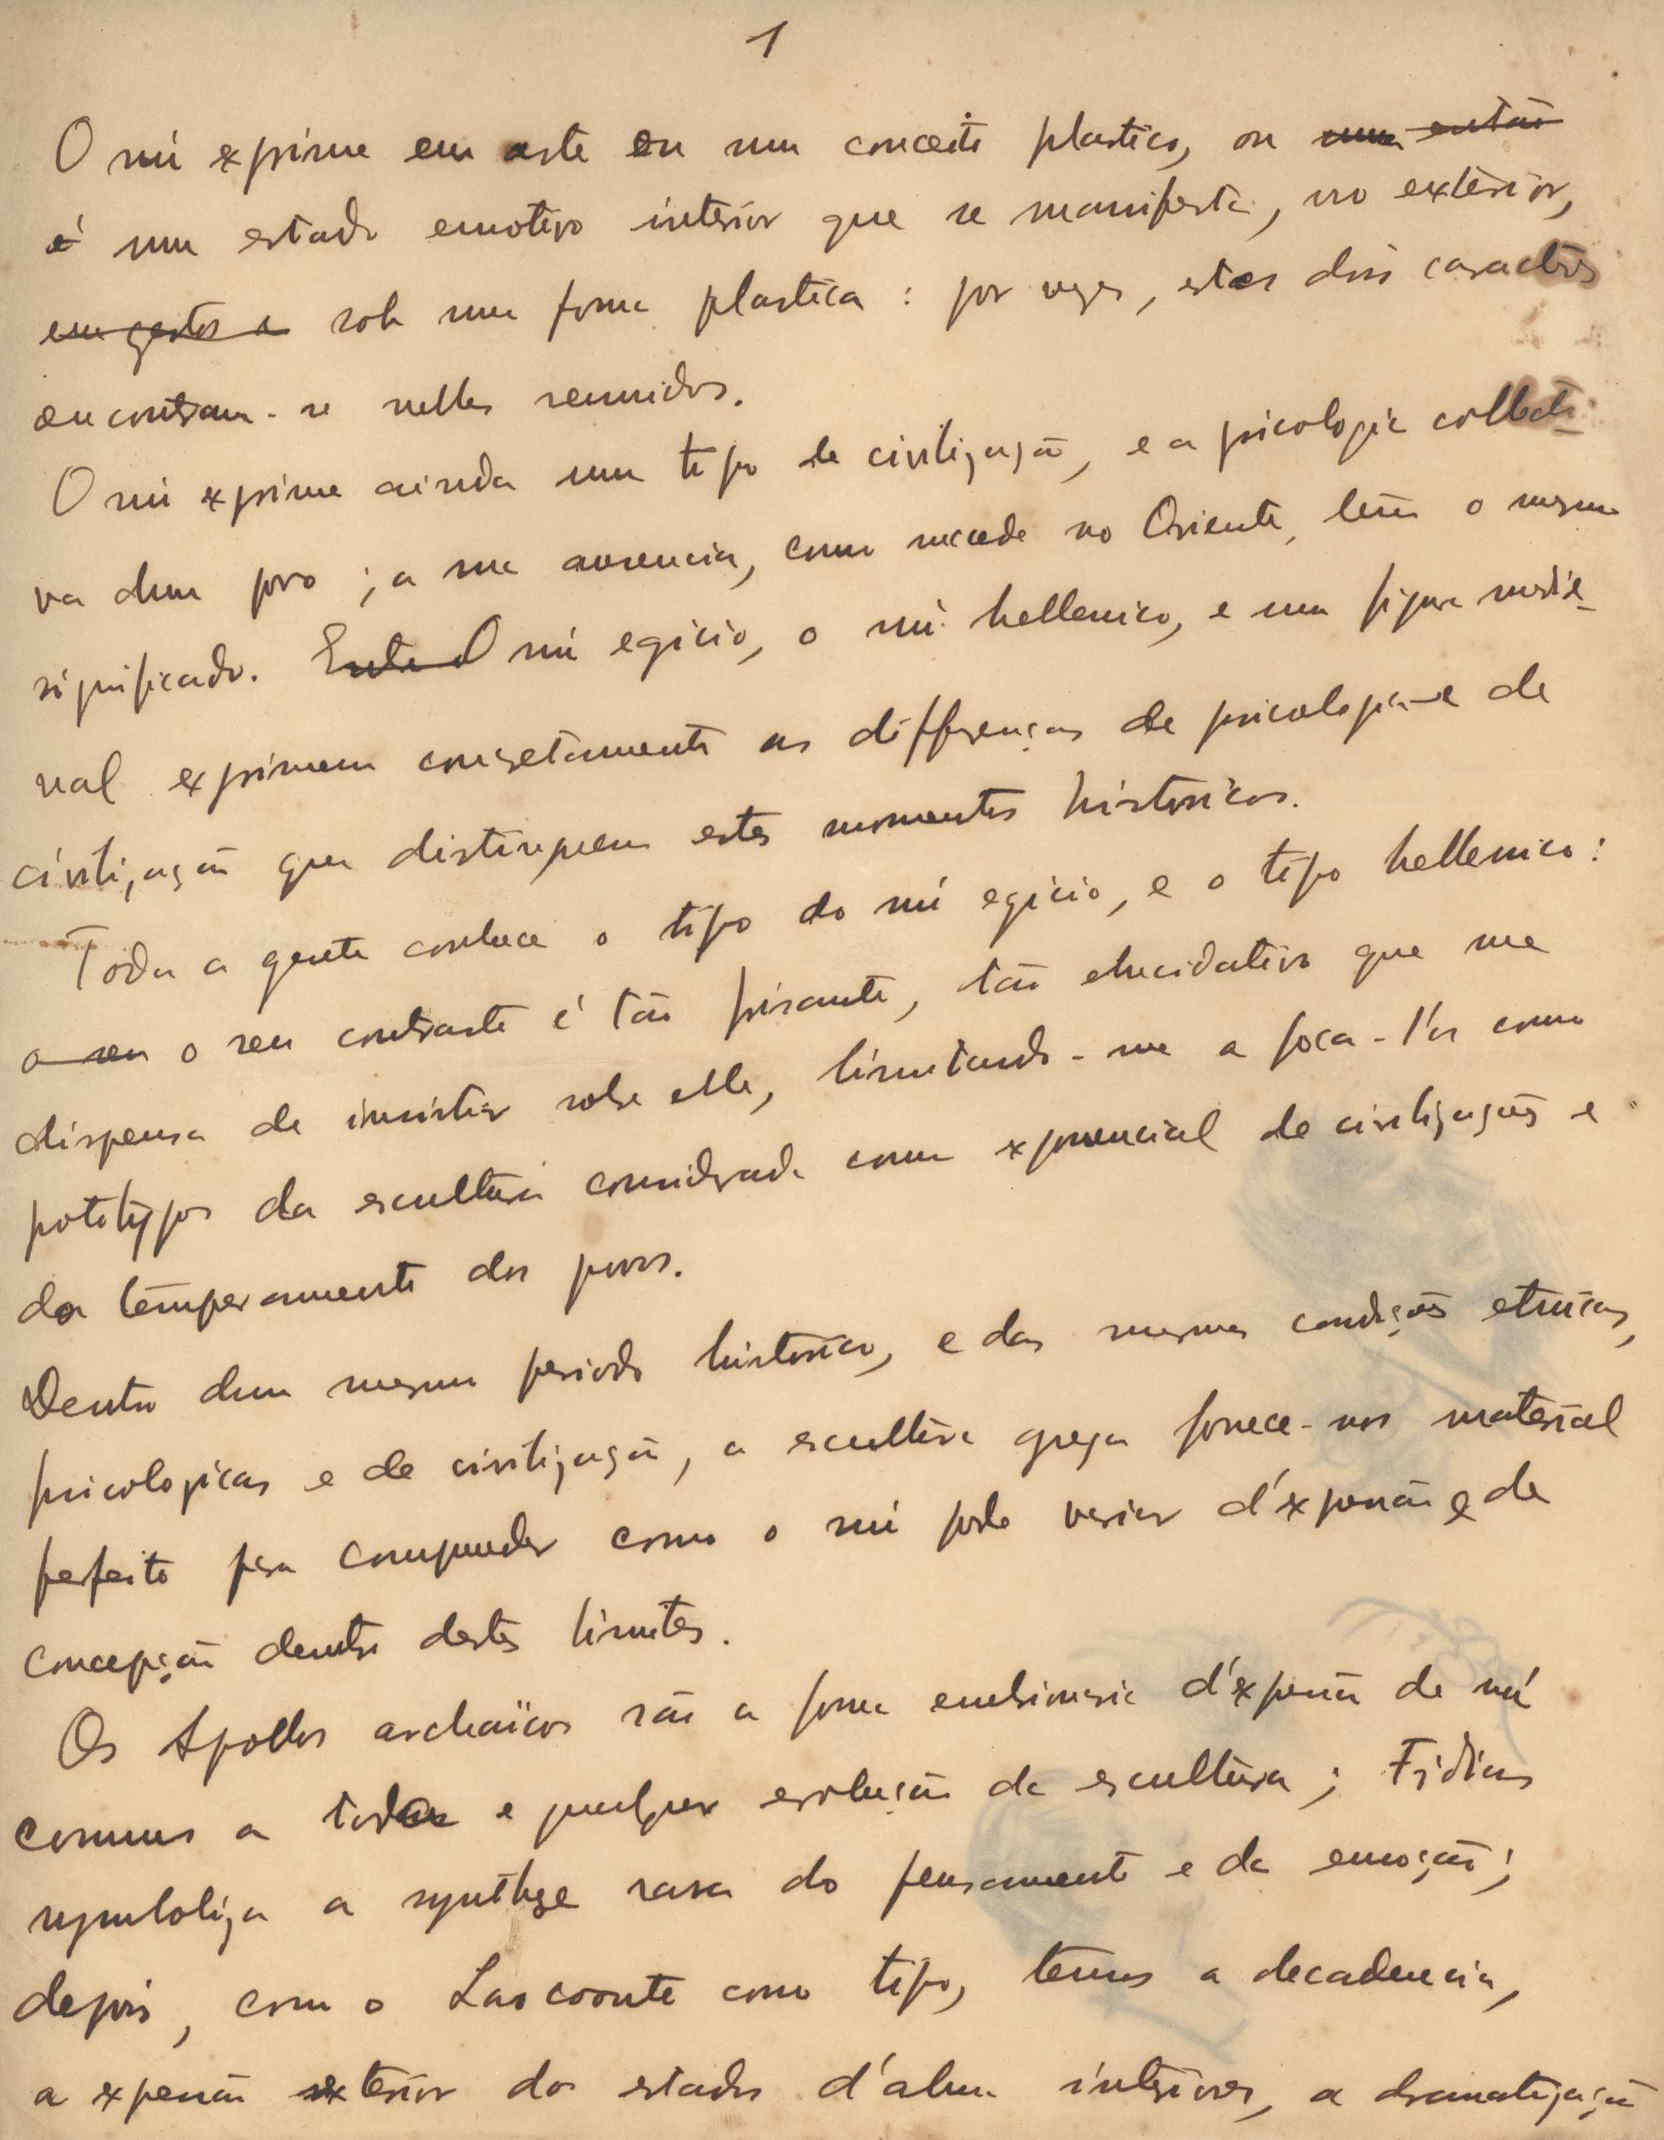 1
O nú exprime em arte ou um conceito plastico, ou
é um estado emotivo interior que se manifesta, no exterior,
em gestos e sob uma forma plastica : por vezes, estes dois caractéres
encontram-se nelles reunidos.
O nú exprime ainda um tipo de civilização, e a psicologia collecti-
va dum povo ; a sua ausencia, como sucede no Oriente, tem o mesmo
significado. O nú egicio, o nú hellenico, e uma figura medie-
val exprimem concretamente as differenças de psicologia e de
civilização que distinguem estes momentos historicos.
Toda a gente conhece o tipo do nú egicio, e o tipo hellenico :
o seu o seu contraste é tão frisante, tão elucidativo que me
dispensa de insistir sobre elle, limitando-me a foca-l'os como
pototypos da escultura considerada como exponencial de civilizações e
do temperamento dos povos.
Dentro dum mesmo periodo historico, e das mesmas condições etnicas,
psicologicas e de civilização, a escultura grega fornece-nos material
perfeito para comprender como o nú pode variar d'expressão e de
concepção dentro destes limites.
Os Apollos archaïcos são a forma embrionaria d'expressão de nú
comuns a toda e qualquer evolução da escultura ; Fidias
symboliza a synthese rara do pensamento e da emoção ;
depois, com o Laocoonte como tipo, temos a decadencia,
a expressão exterior dos estados d'alma interiores, a dramatização